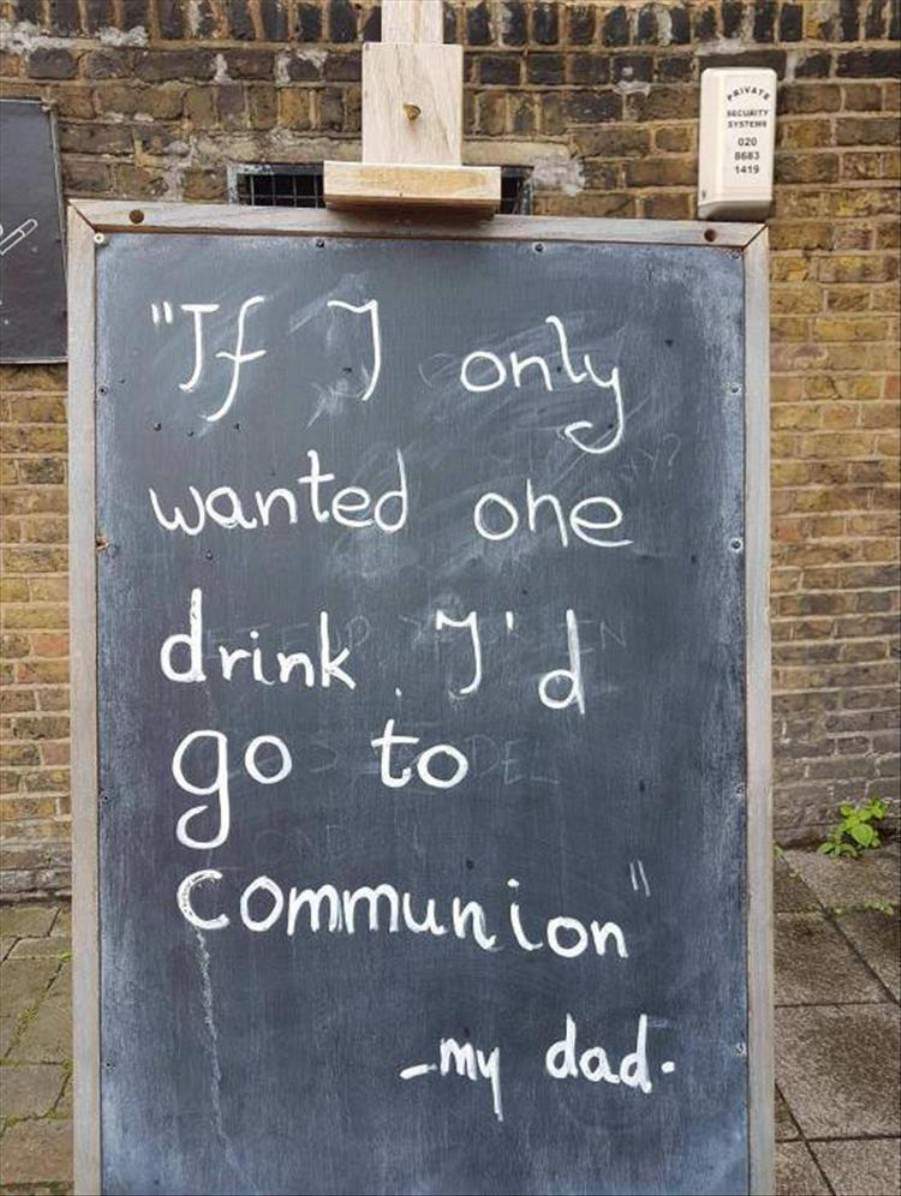 PRIVATE
SECURITY
SYSTEMS
020
8683
1419
"If I only
wanted one
drink I'd
go to
communion"
-my dad.